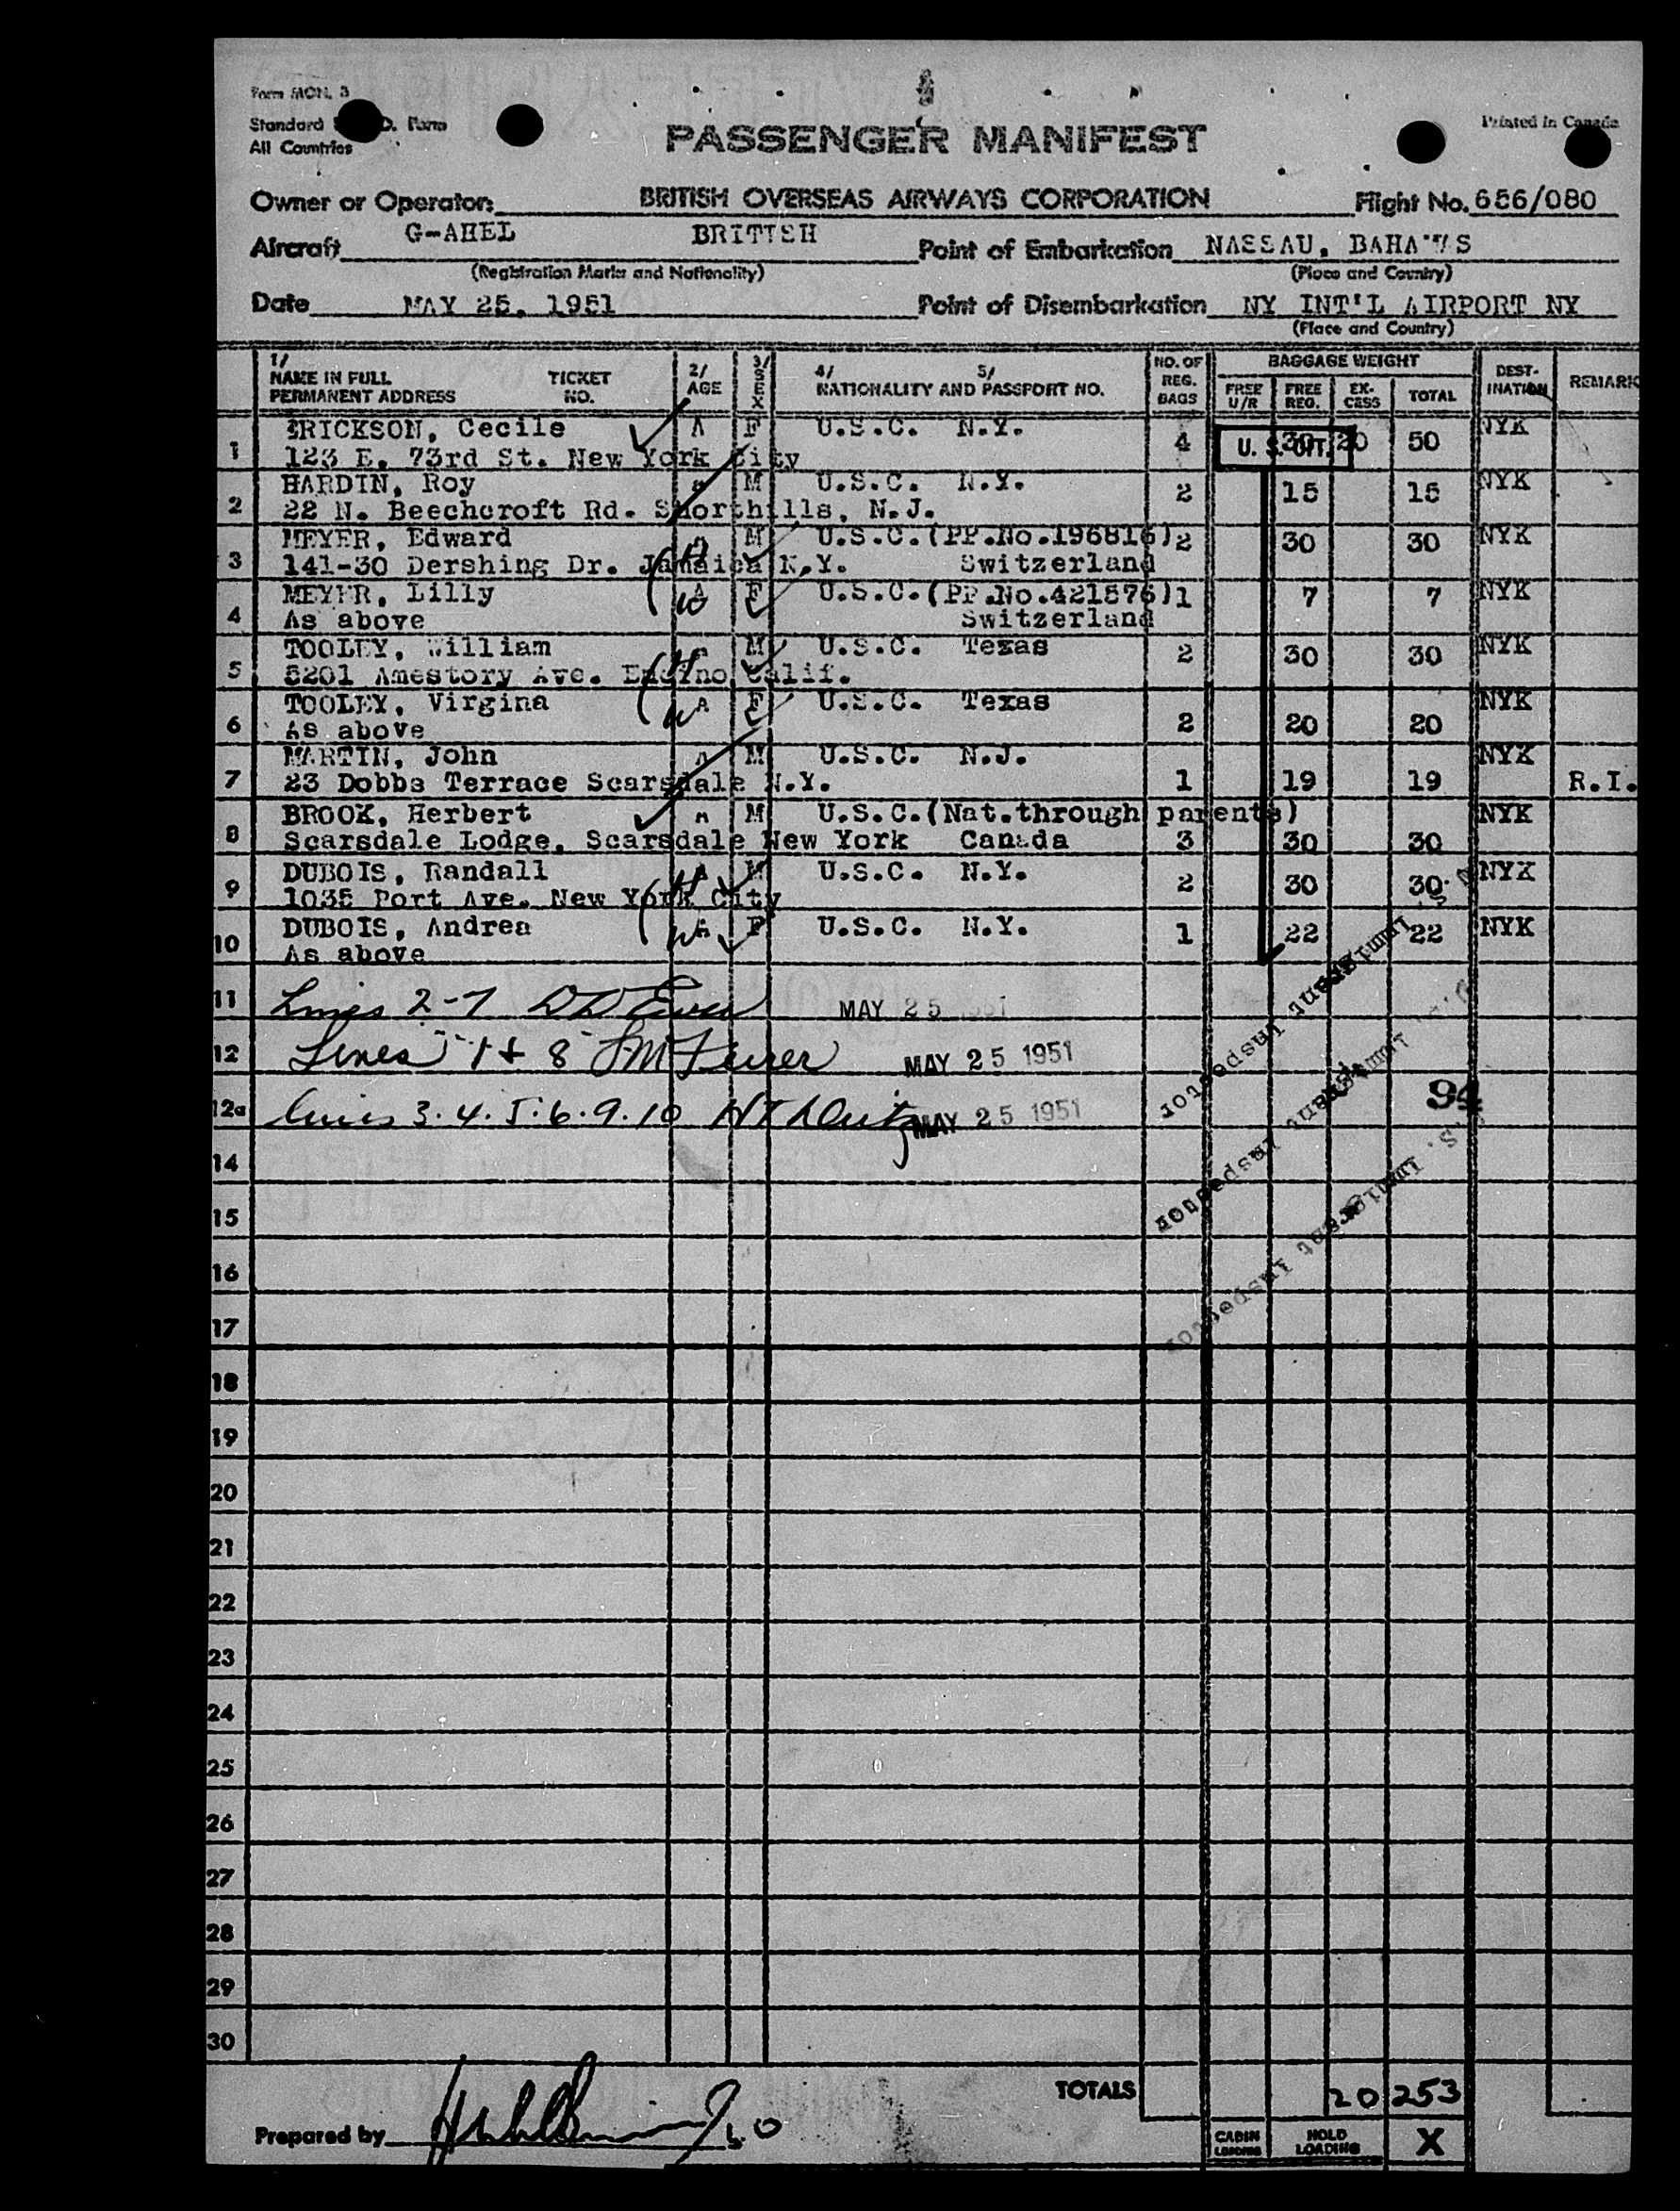 Form MON. 3
Standard D. Form
All Countries
Printed in Canada
PASSENGER MANIFEST
Owner or Operator: BRITISH OVERSEAS AIRWAYS CORPORATION Flight No. 656/080
Aircraft G-AHEL BRITISH Point of Embarkation NASSAU, BAHAMAS
(Registration Marks and Nationality) (Place and Country)
Date MAY 25, 1951 Point of Disembarkation NY INT'L AIRPORT NY
(Place and Country)
1/ NAME IN FULL PERMANENT ADDRESS TICKET NO. 2/ AGE 3/ SEX 4/ 5/ NATIONALITY AND PASSPORT NO. NO. OF REG. BAGS BAGGAGE WEIGHT FREE U/R FREE REG. EX-CESS TOTAL DEST-INATION REMARK
1 ERICKSON, Cecile A F U.S.C. N.Y. 4 30 20 50 NYK
123 E. 73rd St. New York City U. S. CIT.
2 HARDIN, Roy M U.S.C. N.Y. 2 15 15 NYK
22 N. Beechcroft Rd. Shorthills, N.J.
3 MEYER, Edward M U.S.C.(PP.No.196816) 2 30 30 NYK
141-30 Dershing Dr. Jamaica N.Y. Switzerland
4 MEYER, Lilly A F U.S.C.(PP.No.421576) 1 7 7 NYK
As above Switzerland
5 TOOLEY, William M U.S.C. Texas 2 30 30 NYK
5201 Amestory Ave. Encino Calif.
6 TOOLEY, Virgina A F U.S.C. Texas 2 20 20 NYK
As above
7 MARTIN, John A M U.S.C. N.J. 1 19 19 NYK
23 Dobbs Terrace Scarsdale N.Y. R.I.
8 BROOK, Herbert M U.S.C.(Nat.through parents) NYK
Scarsdale Lodge, Scarsdale New York Canada 3 30 30
9 DUBOIS, Randall A M U.S.C. N.Y. 2 30 30 NYK
1035 Port Ave. New York City
10 DUBOIS, Andrea A F U.S.C. N.Y. 1 22 22 NYK
As above
11 Lines 2-7 MAY 25 1951
12 Lines 1 + 8 MAY 25 1951
12a Lines 3.4.5.6.9.10 MAY 25 1951
94
U.S. Immigrant Inspector
U.S. Immigrant Inspector
U.S. Immigrant Inspector
14
15
16
17
18
19
20
21
22
23
24
25
26
27
28
29
30
TOTALS 20 253
Prepared by
CABIN LOADING HOLD LOADING X